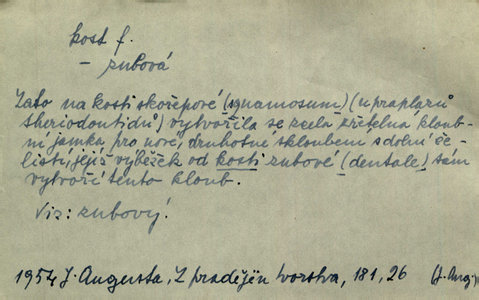 kost f.
– zubová
Zato na kosti skořepové (squamosum) (u praplazů
theriodontidů) vytvořila se zcela zřetelná kloub-
ní jamka pro nové, druhotné skloubení s dolní če-
listí, jejíž výběžek od kosti zubové (dentale) sám
vytvoří tento kloub.
Viz: zubový!
1954 J. Augusta, Z pradějin tvorstva, 181, 26 (J. Aug.